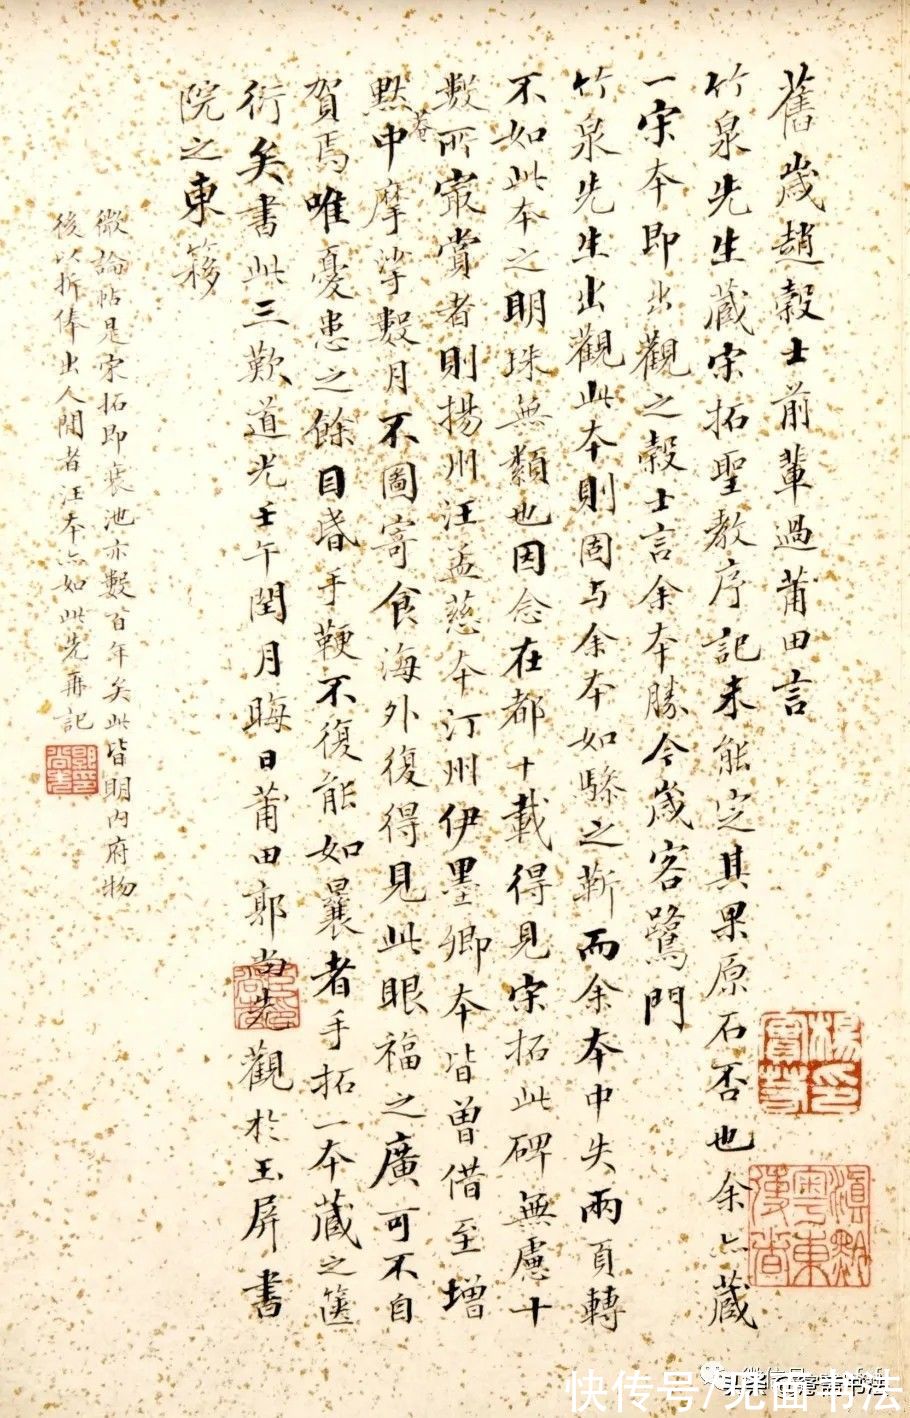 舊歲趙穀士前輩過莆田言
竹泉先生藏宋拓聖教序記未能定其果原石否也余亦藏
一宋本即出觀之穀士言余本勝今歲客鷺門
竹泉先生出觀此本則固与余本如驂之靳而余本中失兩頁轉
不如此本之明珠無纇也因念在都十載得見宋拓此碑無慮十
數所最賞者則揚州汪孟慈本汀州伊墨卿本皆曾借至增
默菴中摩挲數月不圖寄食海外復得見此眼福之廣可不自
賀焉唯憂患之餘目眵手鞭不復能如曩者手拓一本藏之篋
衍矣書此三歎道光壬午閏月晦日莆田郭尚先觀於玉屏書
院之東簃
微論帖是宋拓即裝池亦數百年矣此皆明內府物
後以折俸出人間者汪本亦如此先再記
郭印尚先
滇黔粵東使者
快传号/见面书法